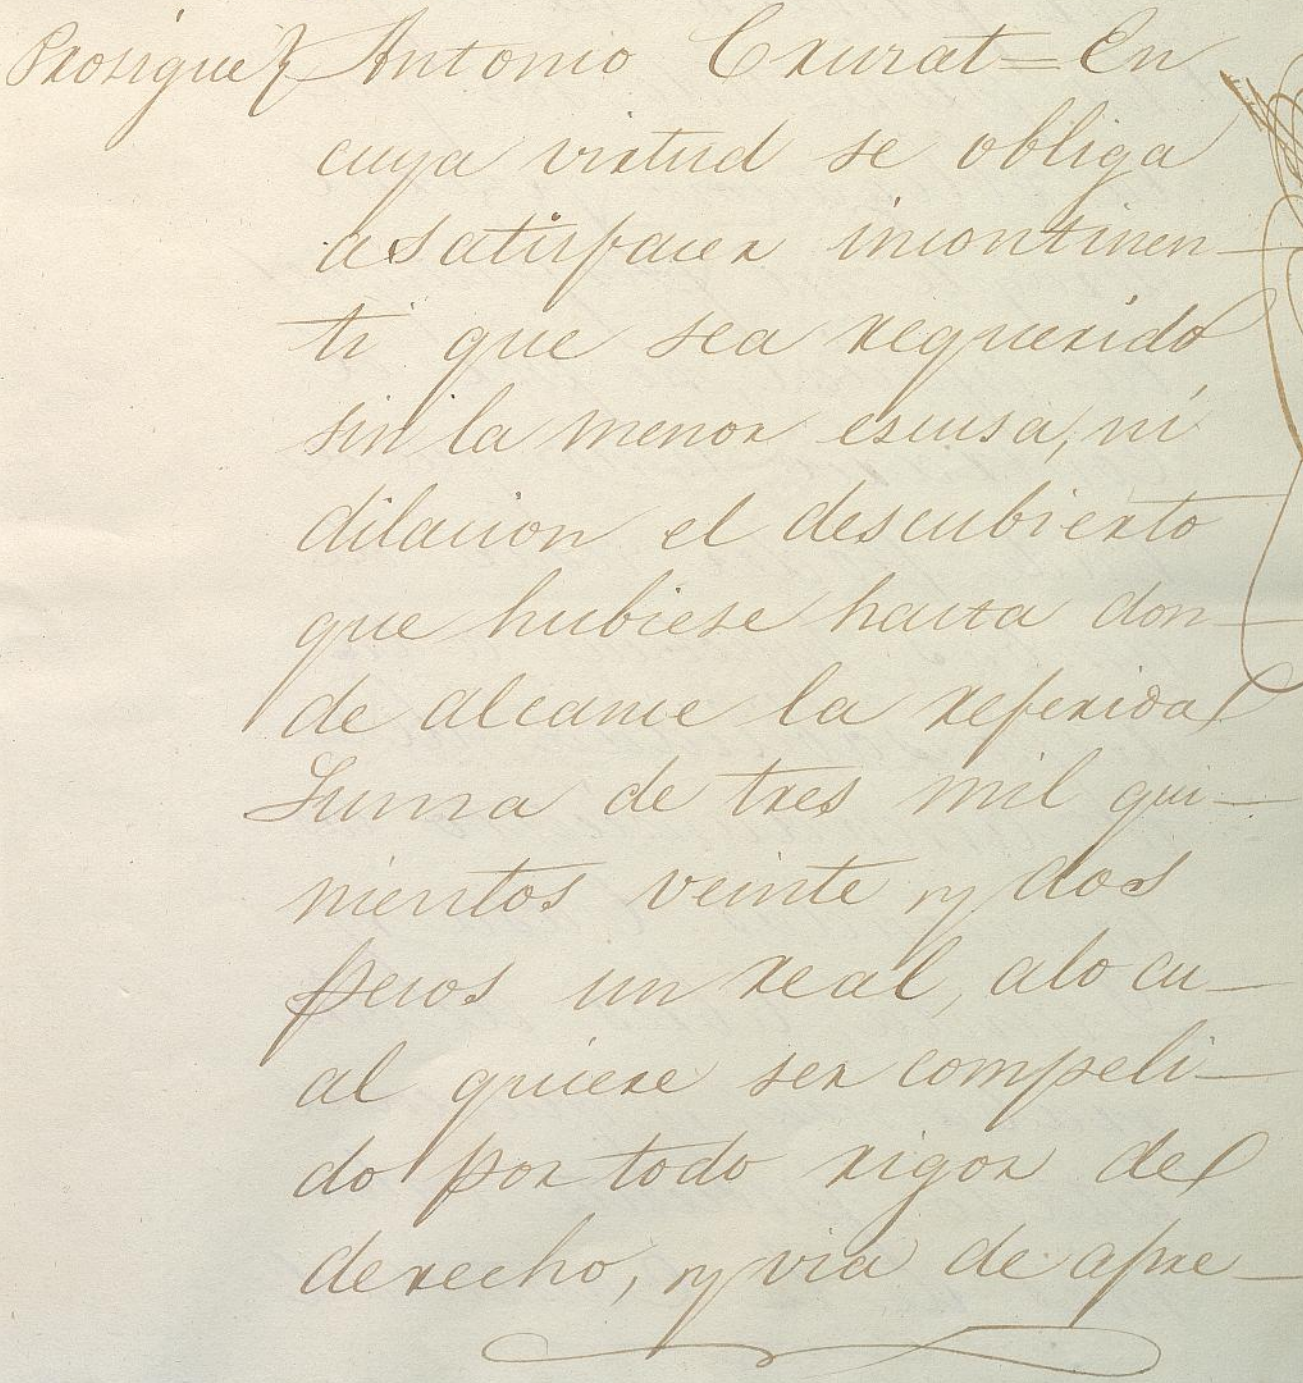 Prosigue Antonio Crurat = En
cuya virtud se obliga
a satisfacer incontinen-
ti que sea requerido
sin la menor escusa, ni
dilacion el descubierto
que hubiese hasta don-
de alcance la referida
Suma de tres mil qui-
nientos veinte y dos
pesos un real, alo cu-
al quiere ser compeli-
do por todo rigor de
derecho, y via de apre-